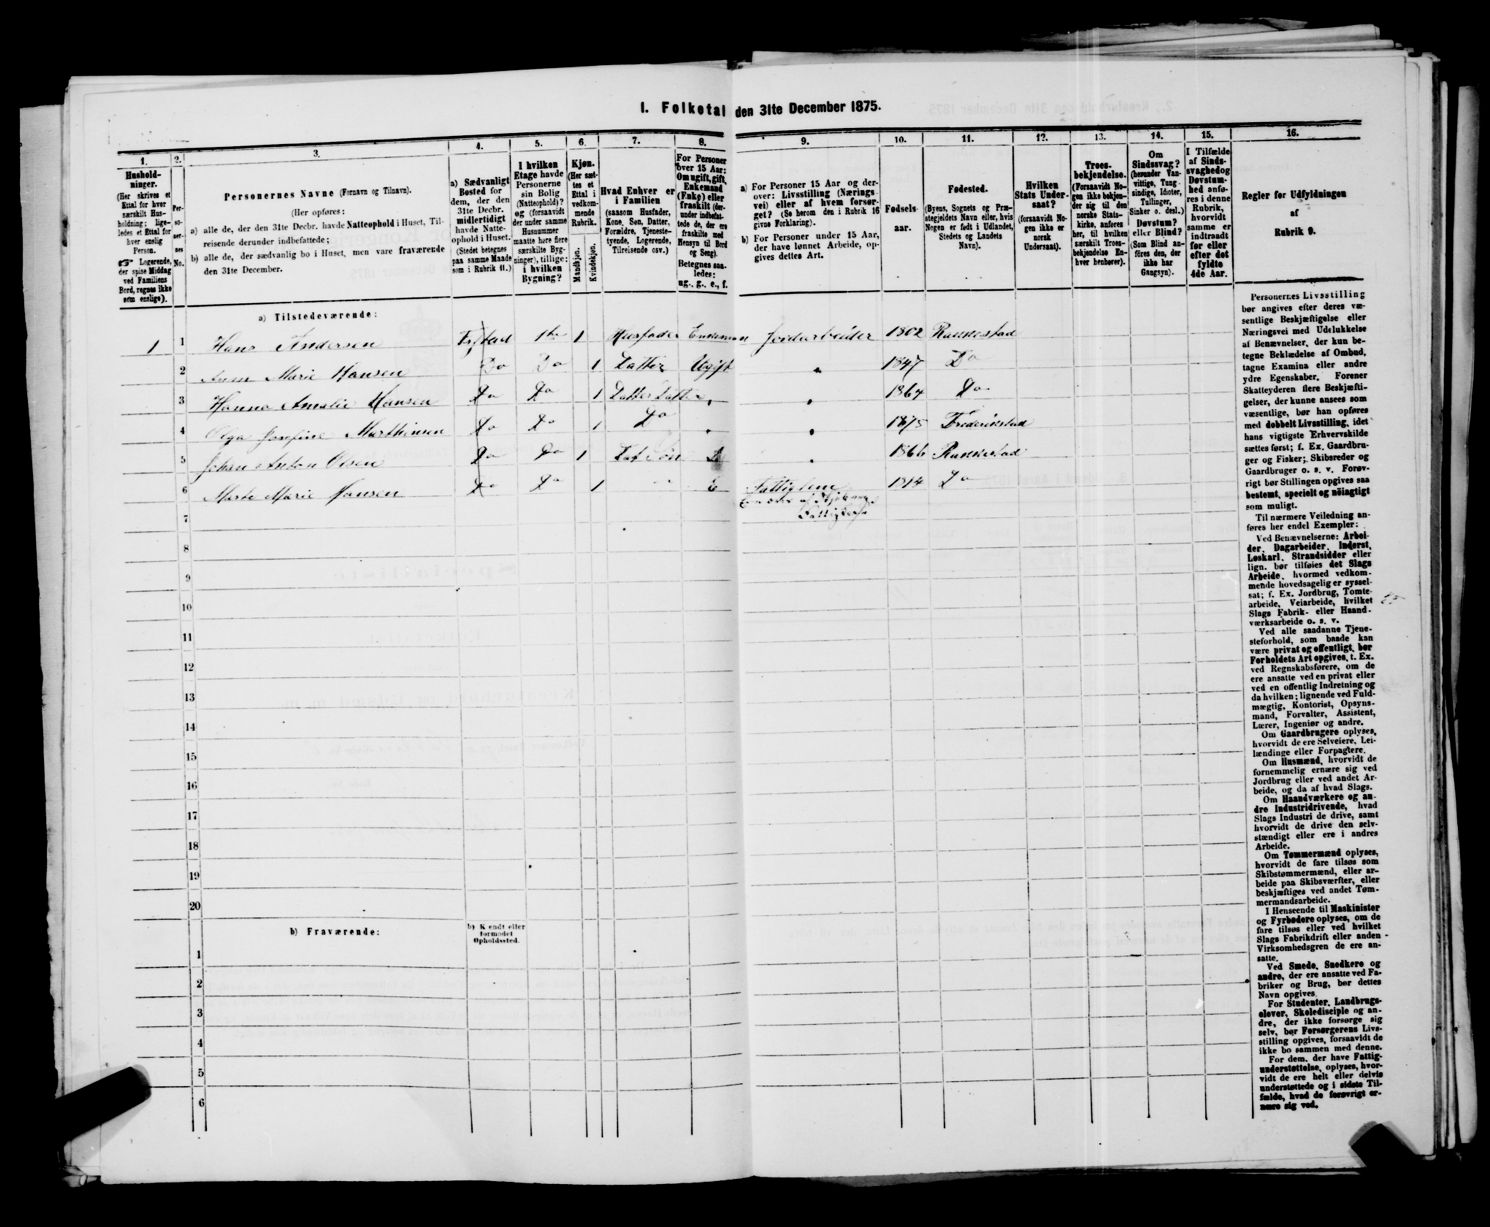 1. Folketal den 31te December 1875.
1.
Hushold-
ninger.
(Her skrives et
Ettal for hver
særskilt Hus-
holdning; lige-
ledes et Ettal for
hver enslig
Person.
☞ Logerende,
der spise Middag
ved Familiens
Bord, regnes ikke
som enslige).
2.
Per-
so-
ner-
nes
No.
3.
Personernes Navne (Fornavn og Tilnavn).
(Her opføres:
a) alle de, der den 31te Decbr. havde Natteophold i Huset, Til-
reisende derunder indbefattede;
b) alle de, der sædvanlig bo i Huset, men vare fraværende
den 31te December.
4.
a) Sædvanligt
Bosted for
dem, der den
31te Decbr.
midlertidigt
havde Natte-
ophold i Huset.
(Stedet betegnes
paa samme Maade
som i Rubrik 11.)
5.
I hvilken
Etage havde
Personerne
sin Bolig
(Natteophold)?
og (forsaavidt
der under samme
Husnummer
maatte høre flere
særskilte Byg-
ninger), tillige:
i hvilken
Bygning?
6.
Kjøn.
(Her sæt-
tes et
Ettal i
vedkom-
mende
Rubrik.
Mandkjøn.
Kvindekjøn.
7.
Hvad Enhver er
i Familien
(saasom Husfader,
Kone, Søn, Datter,
Forældre, Tjeneste-
tyende, Logerende,
Tilreisende osv.)
8.
For Personer
over 15 Aar:
Om ugift, gift,
Enkemand
(Enke) eller
fraskilt (der-
under indbefat-
tede de, der ere
fraskilte med
Hensyn til Bord
og Seng).
Betegnes saa-
ledes:
ug., g., e., f.
9.
a) For Personer 15 Aar og der-
over: Livsstilling (Nærings-
vei) eller af hvem forsør-
get? (Se herom den i Rubrik 16
givne Forklaring).
b) For Personer under 15 Aar,
der have lønnet Arbeide, op-
gives dettes Art.
10.
Fødsels-
aar.
11.
Fødested.
(Byens, Sognets og Præ-
stegjeldets Navn eller, hvis
Nogen er født i Udlandet,
Stedets og Landets
Navn).
12.
Hvilken
Stats Under-
saat?
(forsaavidt No-
gen ikke er
norsk
Undersaat).
13.
Troes-
bekjendelse.
(Forsaavidt No-
gen ikke bekjen-
der sig til den
norske Stats-
kirke, anføres
her, til hvilken
særskilt Troes-
bekjendelse En-
hver henhører).
14.
Om
Sindssvag?
(herunder Van-
vittige, Tung-
sindige, Idioter,
Tullinger,
Sinker o. desl.)
Døvstum?
eller Blind?
(Som Blind an-
føres den, der
ikke har
Gangsyn).
15.
I Tilfælde
af Sinds-
svaghed og
Døvstum-
hed anfø-
res i denne
Rubrik,
hvorvidt
samme er
indtraadt
før eller
efter det
fyldte
4de Aar.
16.
Regler for Udfyldningen
af
Rubrik 9.
a) Tilstedeværende:
1 1 Hans Andersen 1te 1 Husfader Enkemand Jordarbeider 1802 Rakkestad
2 Ann Marie Hansen Do Do 1 Datter Ugift " 1847 Do
3 Hanna Amalie Hansen Do Do 1 Datter Datter " " 1864 Do
4 Olga Josefine Marthinsen Do Do 1 Do " " 1875 Frederikstad
5 Johan Anton Olsen Do Do 1 " 1866 Rakkestad
6 Marte Marie Hansen Do Do 1 E Fattiglem 1814 Do
7
8
9
10
11
12
13
14
15
16
17
18
19
20
b) Fraværende:
b) Kjendt eller
formodet
Opholdssted.
1
2
3
4
5
6
Personernes Livsstilling
bør angives efter deres væ-
sentlige Beskjæftigelse eller
Næringsvei med Udelukkelse
af Benævnelser, der kun be-
tegne Beklædelse af Ombud,
tagne Examina eller andre
ydre Egenskaber. Forener
Skatteyderen flere Beskjæfti-
gelser, der kunne ansees som
væsentlige, bør han opføres
med dobbelt Livsstilling, idet
hans vigtigste Erhvervskilde
sættes først; f. Ex. Gaardbru-
ger og Fisker; Skibsreder og
Gaardbruger o. s. v. Forøv-
rigt bør Stillingen opgives saa
bestemt, specielt og nøiagtigt
som muligt.
Til nærmere Veiledning an-
føres her endel Exempler:
Ved Benævnelserne: Arbei-
der, Dagarbeider, Inderst,
Løskarl, Strandsidder eller
lign. bør tilføies det Slags
Arbeide, hvormed vedkom-
mende hovedsagelig er syssel-
sat; f. Ex. Jordbrug, Tomte-
arbeide, Veiarbeide, hvilket
Slags Fabrik- eller Haand-
værksarbeide o. s. v.
Ved alle saadanne Tjene-
steforhold, som baade kan
være privat og offentligt, bør
Forholdets Art opgives, t. Ex.
ved Regnskabsførere, om de
ere ansatte ved en privat eller
ved en offentlig Indretning og
da hvilken; lignende ved Fuld-
mægtig, Kontorist, Opsyns-
mand, Forvalter, Assistent,
Lærer, Ingeniør og andre.
Om Gaardbrugere oplyses,
hvorvidt de ere Selveiere, Lei-
lændinge eller Forpagtere.
Om Husmænd, hvorvidt de
fornemmelig ernære sig ved
Jordbrug eller ved andet Ar-
beide, og da af hvad Slags.
Om Haandværkere og an-
dre Industridrivende, hvad
Slags Industri de drive, samt
hvorvidt de drive den selv-
stændigt eller ere i andres
Arbeide.
Om Tømmermænd oplyses,
hvorvidt de fare tilsøs som
Skibstømmermænd, eller ar-
beide paa Skibsværfter, eller
beskjæftiges ved andet Tøm-
mermandsarbeide.
I Henseende til Maskinister
og Fyrbødere oplyses, om de
fare tilsøs eller ved hvilket
Slags Fabrikdrift eller anden
Virksomhedsgren de ere an-
satte.
Ved Smede, Snedkere og
andre, der ere ansatte ved Fa-
briker og Brug, bør dettes
Navn opgives.
For Studenter, Landbrugs-
elever, Skoledisciple og an-
dre, der ikke forsørge sig
selv, bør Forsørgerens Livs-
stilling opgives, forsaavidt de
ikke bo sammen med denne.
For dem, der have Fattig-
understøttelse, oplyses, hvor-
vidt de ere helt eller delvis
understøttede og i sidste Til-
fælde, hvad de forøvrigt er-
nære sig ved.